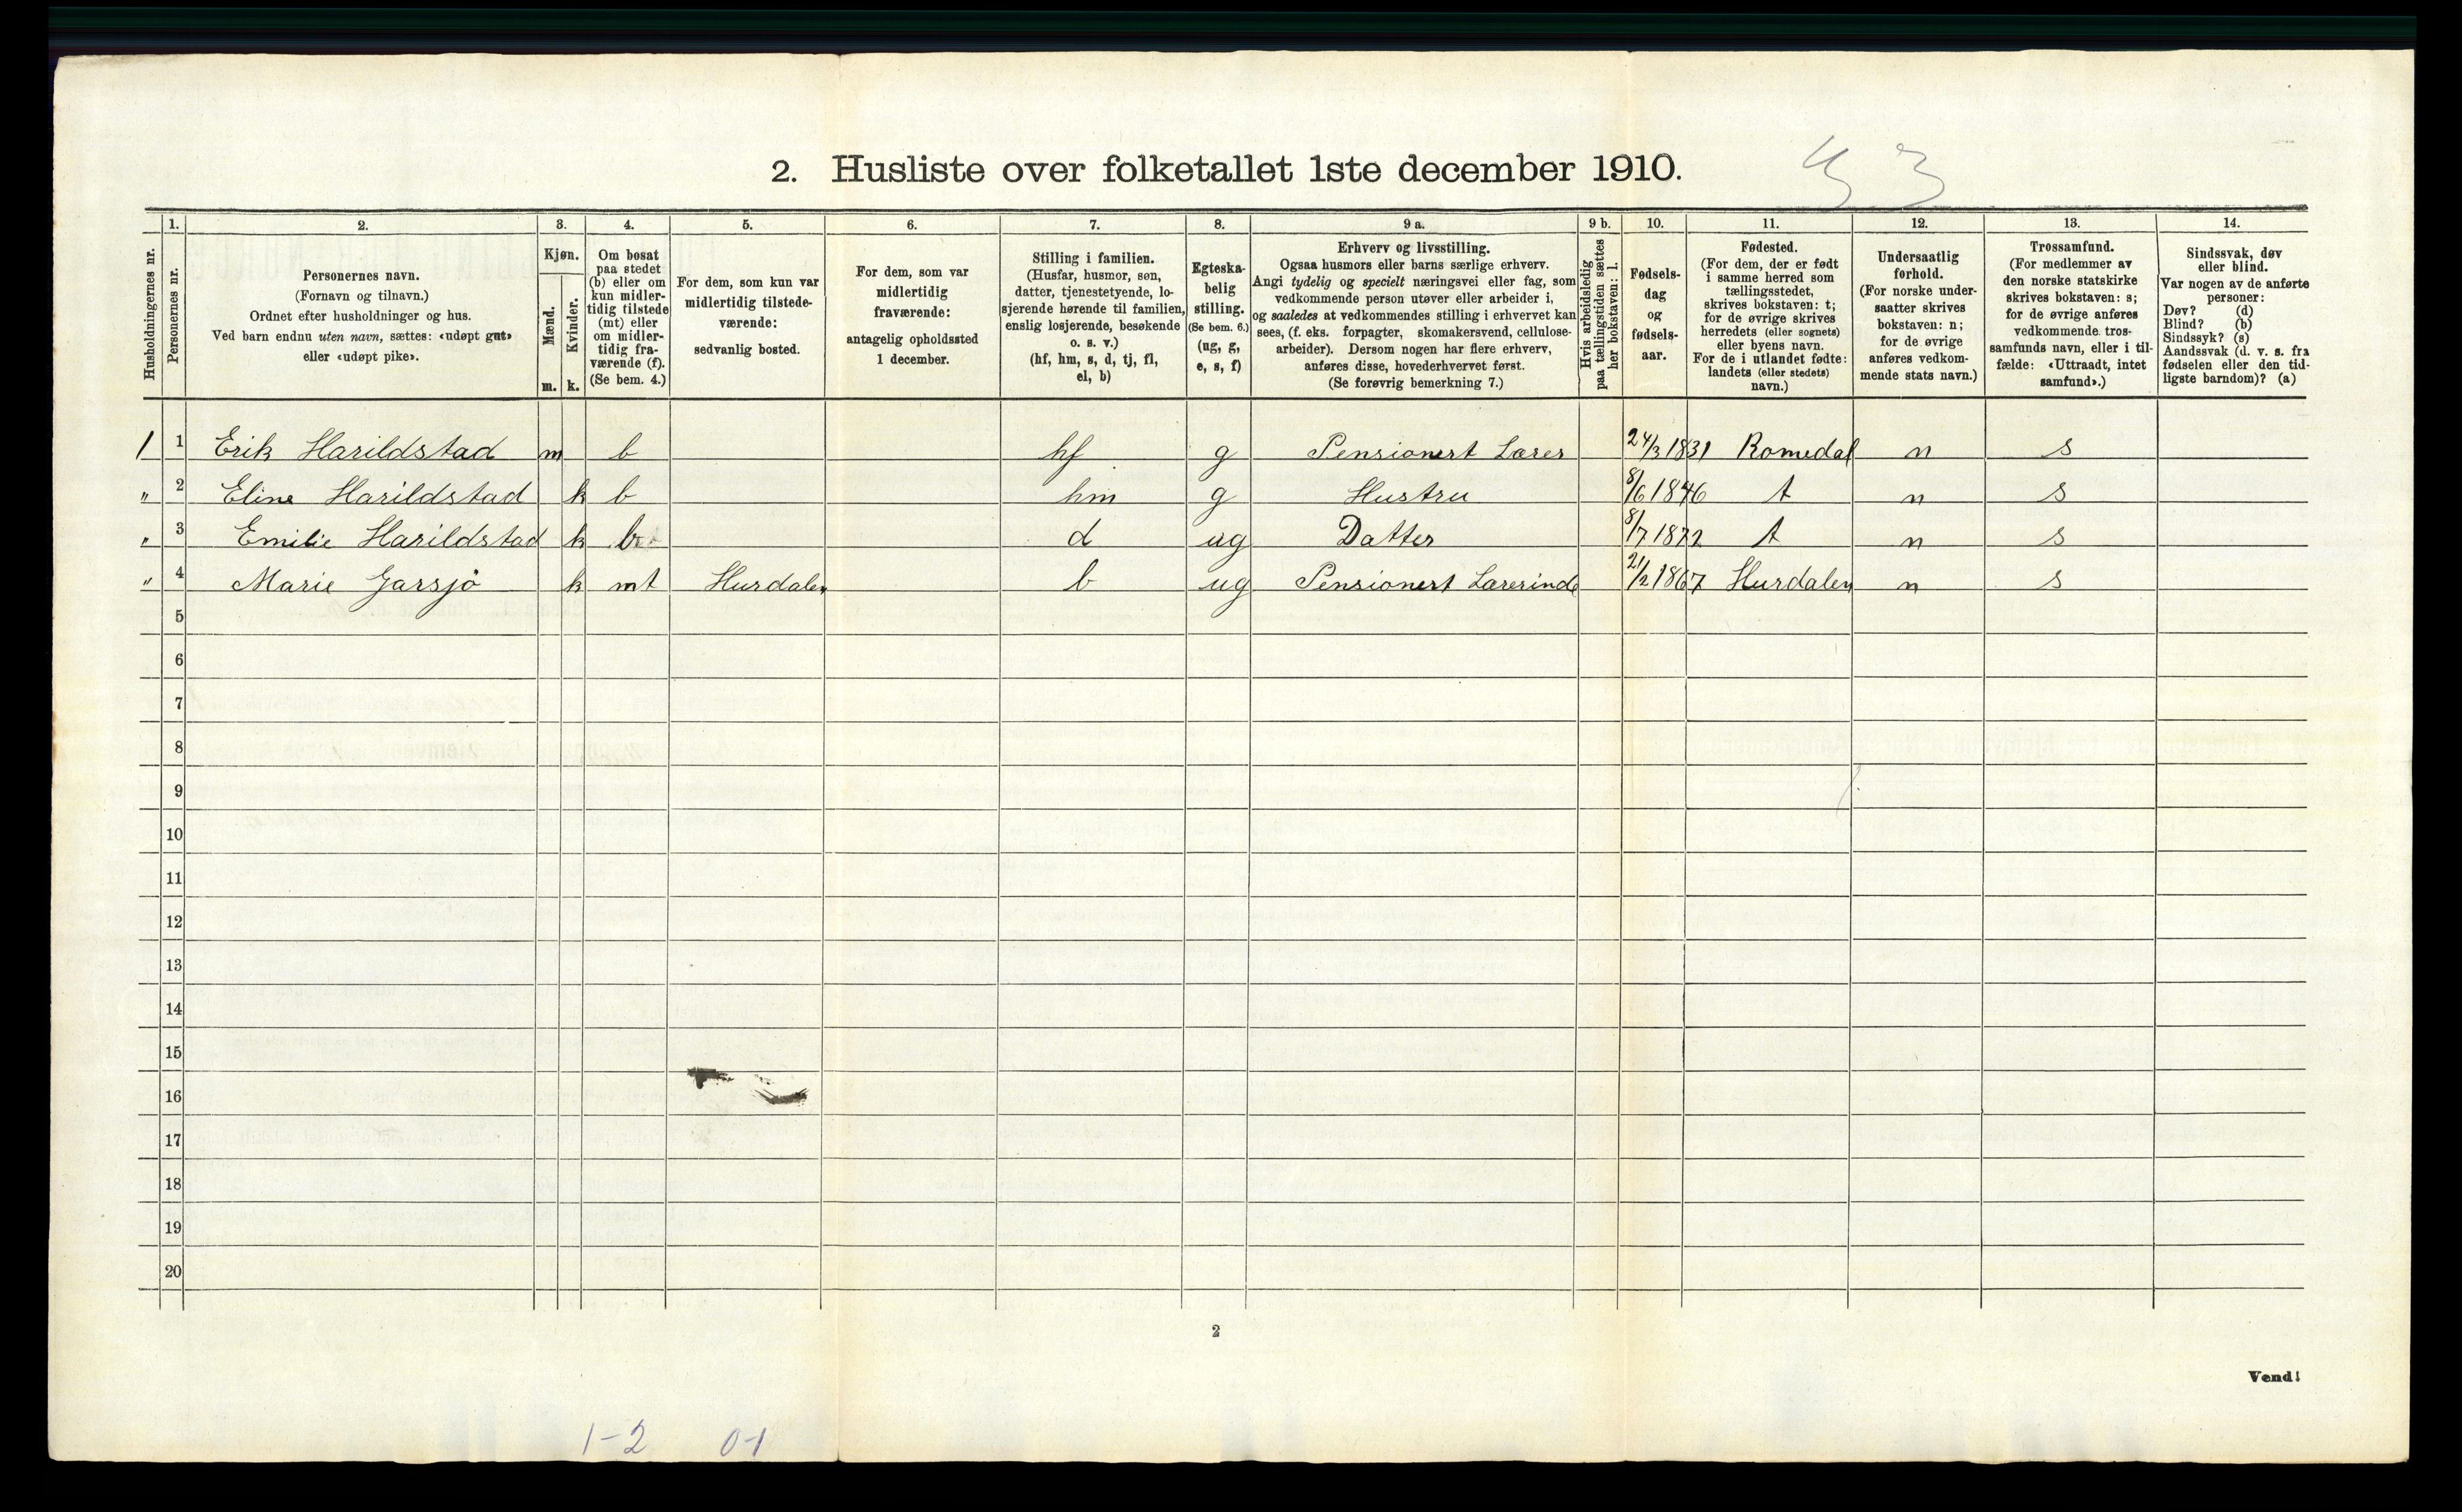 2. Husliste over folketallet 1ste december 1910.
Husholdningernes nr.
1.
Personernes nr.
2.
Personernes navn.
(Fornavn og tilnavn.)
Ordnet efter husholdninger og hus.
Ved barn endnu uten navn, sættes: «udøpt gut»
eller «udøpt pike».
3.
Kjøn.
Mænd.
Kvinder.
m. k.
4.
Om bosat
paa stedet
(b) eller om
kun midler-
tidig tilstede
(mt) eller
om midler-
tidig fra-
værende (f).
(Se bem. 4.)
5.
For dem, som kun var
midlertidig tilstede-
værende:
sedvanlig bosted.
6.
For dem, som var
midlertidig
fraværende:
antagelig opholdssted
1 december.
7.
Stilling i familien.
(Husfar, husmor, søn,
datter, tjenestetyende, lo-
sjerende hørende til familien,
enslig losjerende, besøkende
o. s. v.)
(hf, hm, s, d, tj, fl,
el, b)
8.
Egteska-
belig
stilling.
(Se bem. 6.)
(ug, g,
e, s, f)
9 a.
Erhverv og livsstilling.
Ogsaa husmors eller barns særlige erhverv.
Angi tydelig og specielt næringsvei eller fag, som
vedkommende person utøver eller arbeider i,
og saaledes at vedkommendes stilling i erhvervet kan
sees, (f. eks. forpagter, skomakersvend, cellulose-
arbeider). Dersom nogen har flere erhverv,
anføres disse, hovederhvervet først.
(Se forøvrig bemerkning 7.)
9 b.
Hvis arbeidsledig
paa tællingstiden sættes
her bokstaven: l.
10.
Fødsels-
dag
og
fødsels-
aar.
11.
Fødested.
(For dem, der er født
i samme herred som
tællingsstedet,
skrives bokstaven: t;
for de øvrige skrives
herredets (eller sognets)
eller byens navn.
For de i utlandet fødte:
landets (eller stedets)
navn.)
12.
Undersaatlig
forhold.
(For norske under-
saatter skrives
bokstaven: n;
for de øvrige
anføres vedkom-
mende stats navn.)
13.
Trossamfund.
(For medlemmer av
den norske statskirke
skrives bokstaven: s;
for de øvrige anføres
vedkommende tros-
samfunds navn, eller i til-
fælde: «Uttraadt, intet
samfund».)
14.
Sindssvak, døv
eller blind.
Var nogen av de anførte
personer:
Døv? (d)
Blind? (b)
Sindssyk? (s)
Aandssvak (d. v. s. fra
fødselen eller den tid-
ligste barndom)? (a)
1 1 Erik Harildstad m b hf g Pensionert Lærer 24/3 1831 Romedal n s
" 2 Eline Harildstad k b hm g Hustru 8/6 1846 t n s
" 3 Emilie Harildstad k b d ug Datter 8/7 1872 t n s
" 4 Marie Garsjø k mt Hurdalen b ug Pensionert Lærerinde 21/2 1867 Hurdalen n s
5
6
7
8
9
10
11
12
13
14
15
16
17
18
19
20
2
Vend!
1-2 0-1